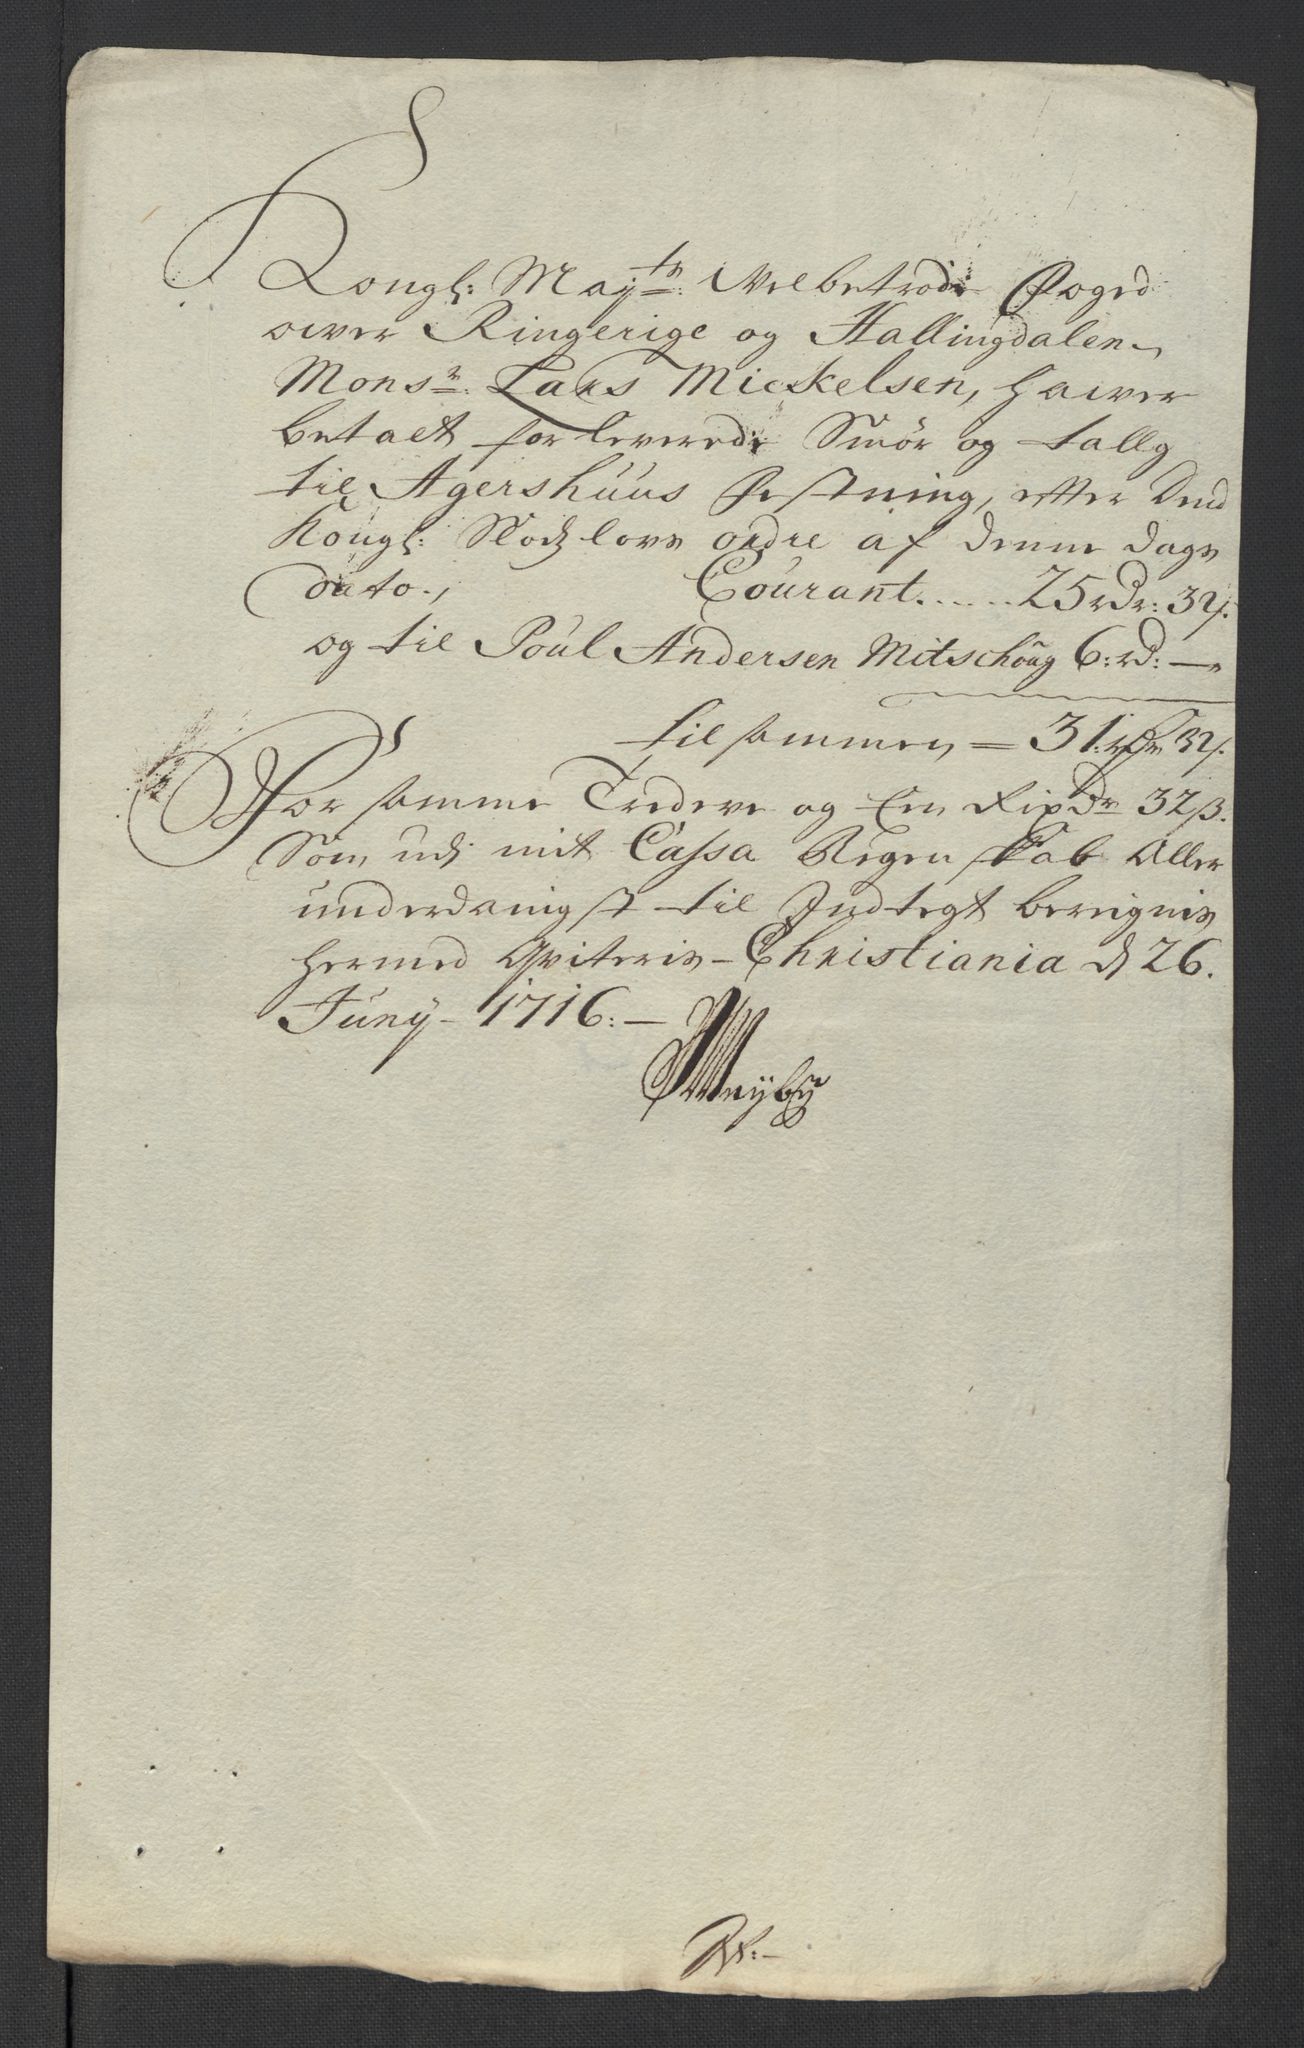 Kongl: May:ts: Velbetrode Foged
ower Ringerige og Hallingdalen
Monsr: Lars Mickelsen, hawer
betalt for leverede Smör og tallg
til Agershuus Festning, efter dend
Kongl: Slodzlovs ordre af denne dags
dato., Courant......25 rdr: 32s.
og til Poul Andersen Mitschoug 6: rd: —
til sammen = 31: rdr 32s.
For samme Tredeve og Een Rixdr 32 ß.
Som udj mit Cassa Regenskab Aller
underdanigst til Indtegt beregnis
hermed Qviteris - Christiania d 26.
Juny - 1716: —